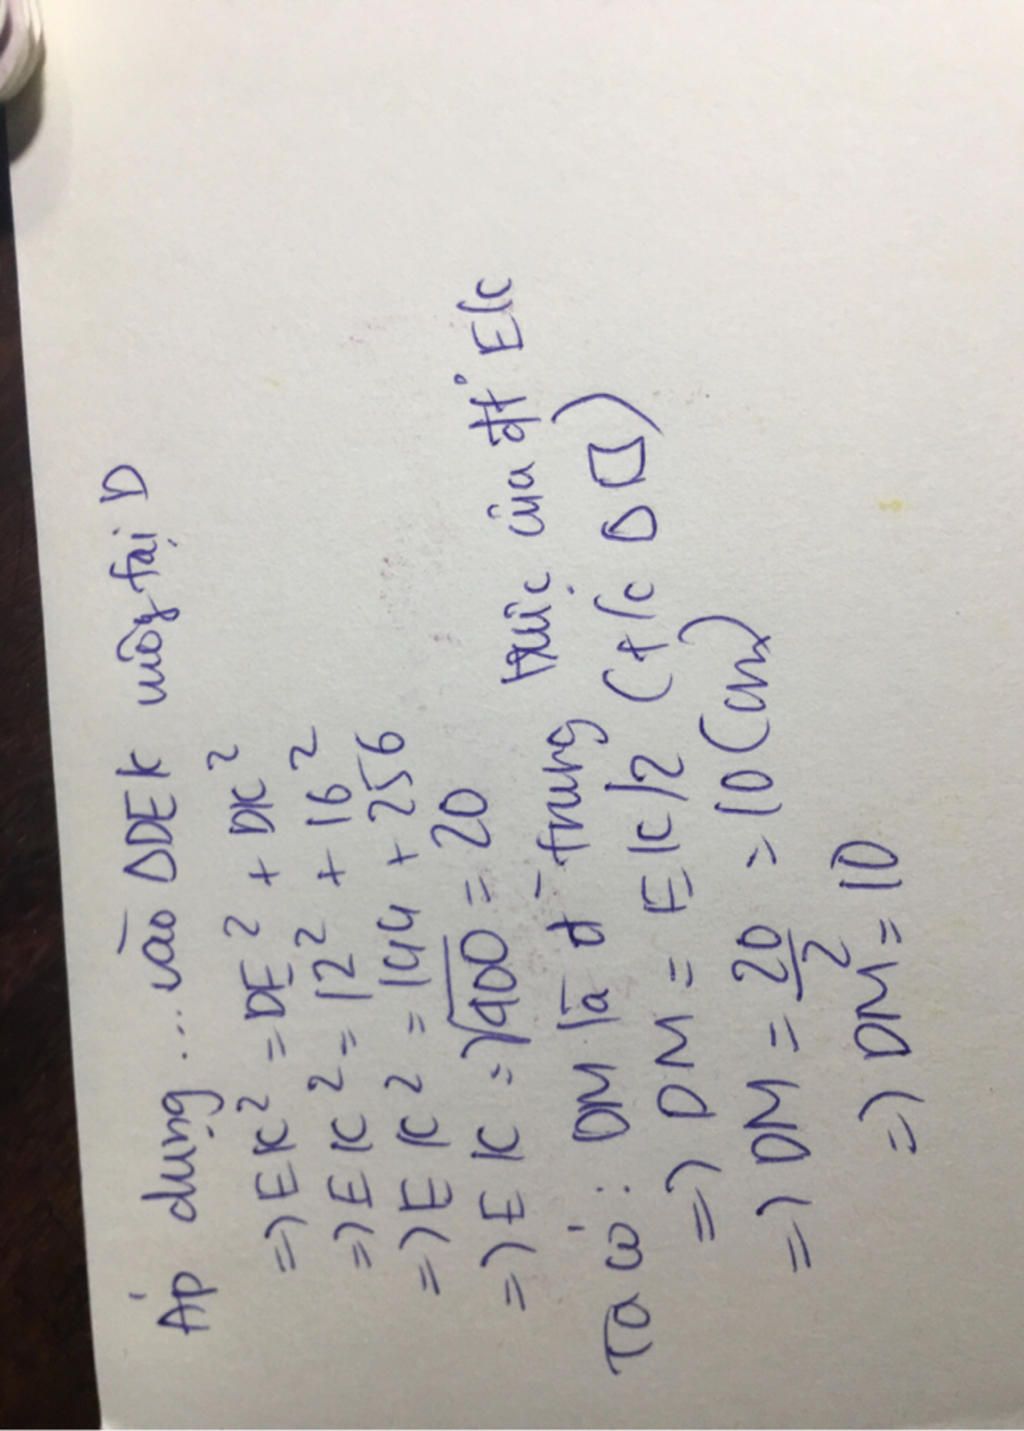 Áp dụng ... vào ΔDEK vuông tại D
=> EK² = DE² + DK²
=> EK² = 12² + 16²
=> EK² = 144 + 256
=> EK = √400 = 20
Ta có: DM là đ trung trực của đt EK
=> DM = EK/2 (t/c Δ □)
=> DM = 20/2 = 10 (cm)
=> DM = 10